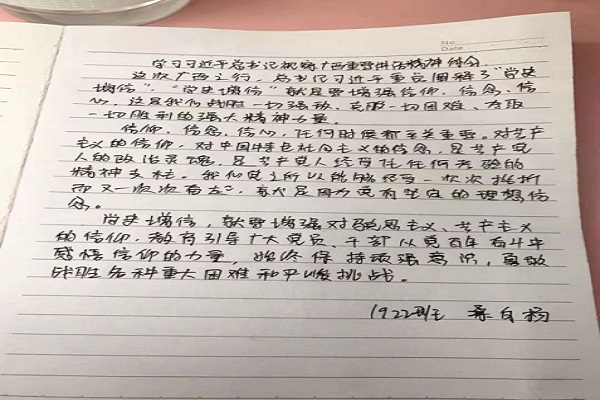 No.
Date
学习习近平总书记视察广西重要讲话精神体会
这次广西之行,总书记习近平重点阐释了"党史
增信","党史增信"就是要增强信仰、信念、信
心,这是我们战胜一切强敌、克服一切困难、夺取
一切胜利的强大精神力量。
信仰、信念、信心,任何时候都至关重要。对共产
主义的信仰,对中国特色社会主义的信念,是共产党
人的政治灵魂,是共产党人经受住任何考验的
精神支柱。我们党之所以能够经受一次次挫折
而又一次次奋起,就是因为党有坚定的理想信
念。
党史增信,就要增强对马克思主义、共产主义
的信仰,教育引导广大党员、干部从党百年奋斗中
感悟信仰的力量,始终保持顽强意识,勇敢
战胜各种重大困难和严峻挑战。
1922班 自杨